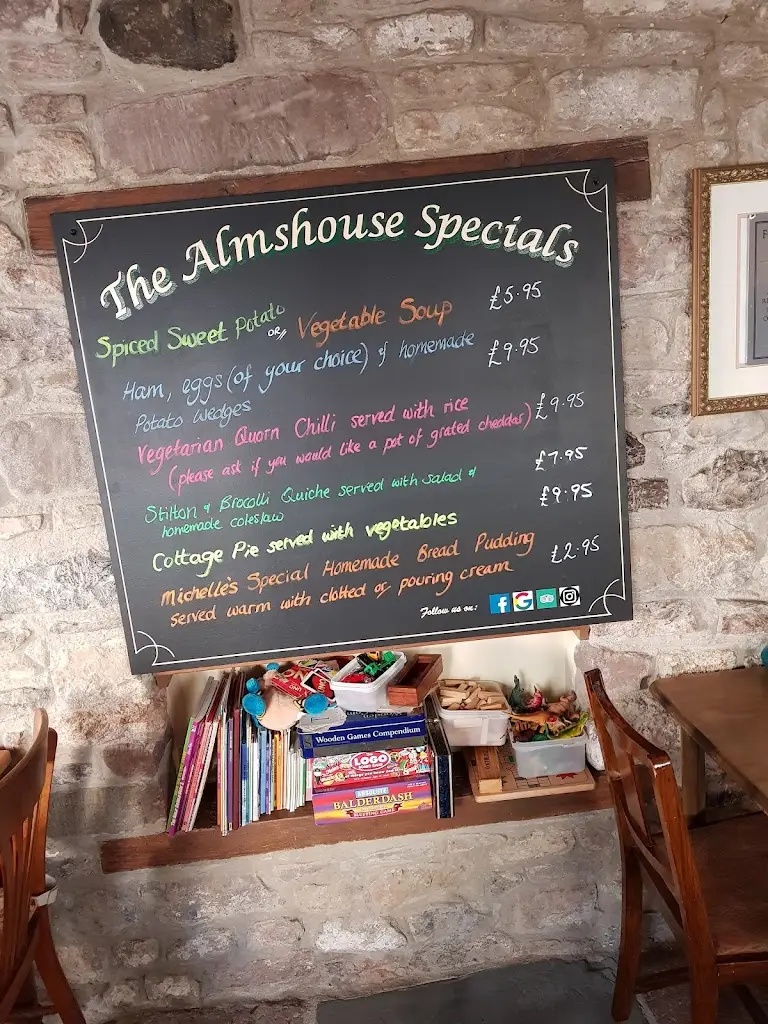 The Almshouse Specials
Spiced Sweet Potato OR,, Vegetable Soup £5.95
Ham, eggs (of your choice) & homemade £9.95
Potato wedges
Vegetarian Quorn Chilli served with rice £9.95
(please ask if you would like a pot of grated cheddar)
Stilton & Brocolli Quiche served with salad & £7.95
homemade coleslaw
Cottage Pie served with vegetables £9.95
Michelle's Special Homemade Bread Pudding £2.95
served warm with clotted or pouring cream
Follow us on:
Wooden Games Compendium
LOGO
ABSOLUTE
BALDERDASH